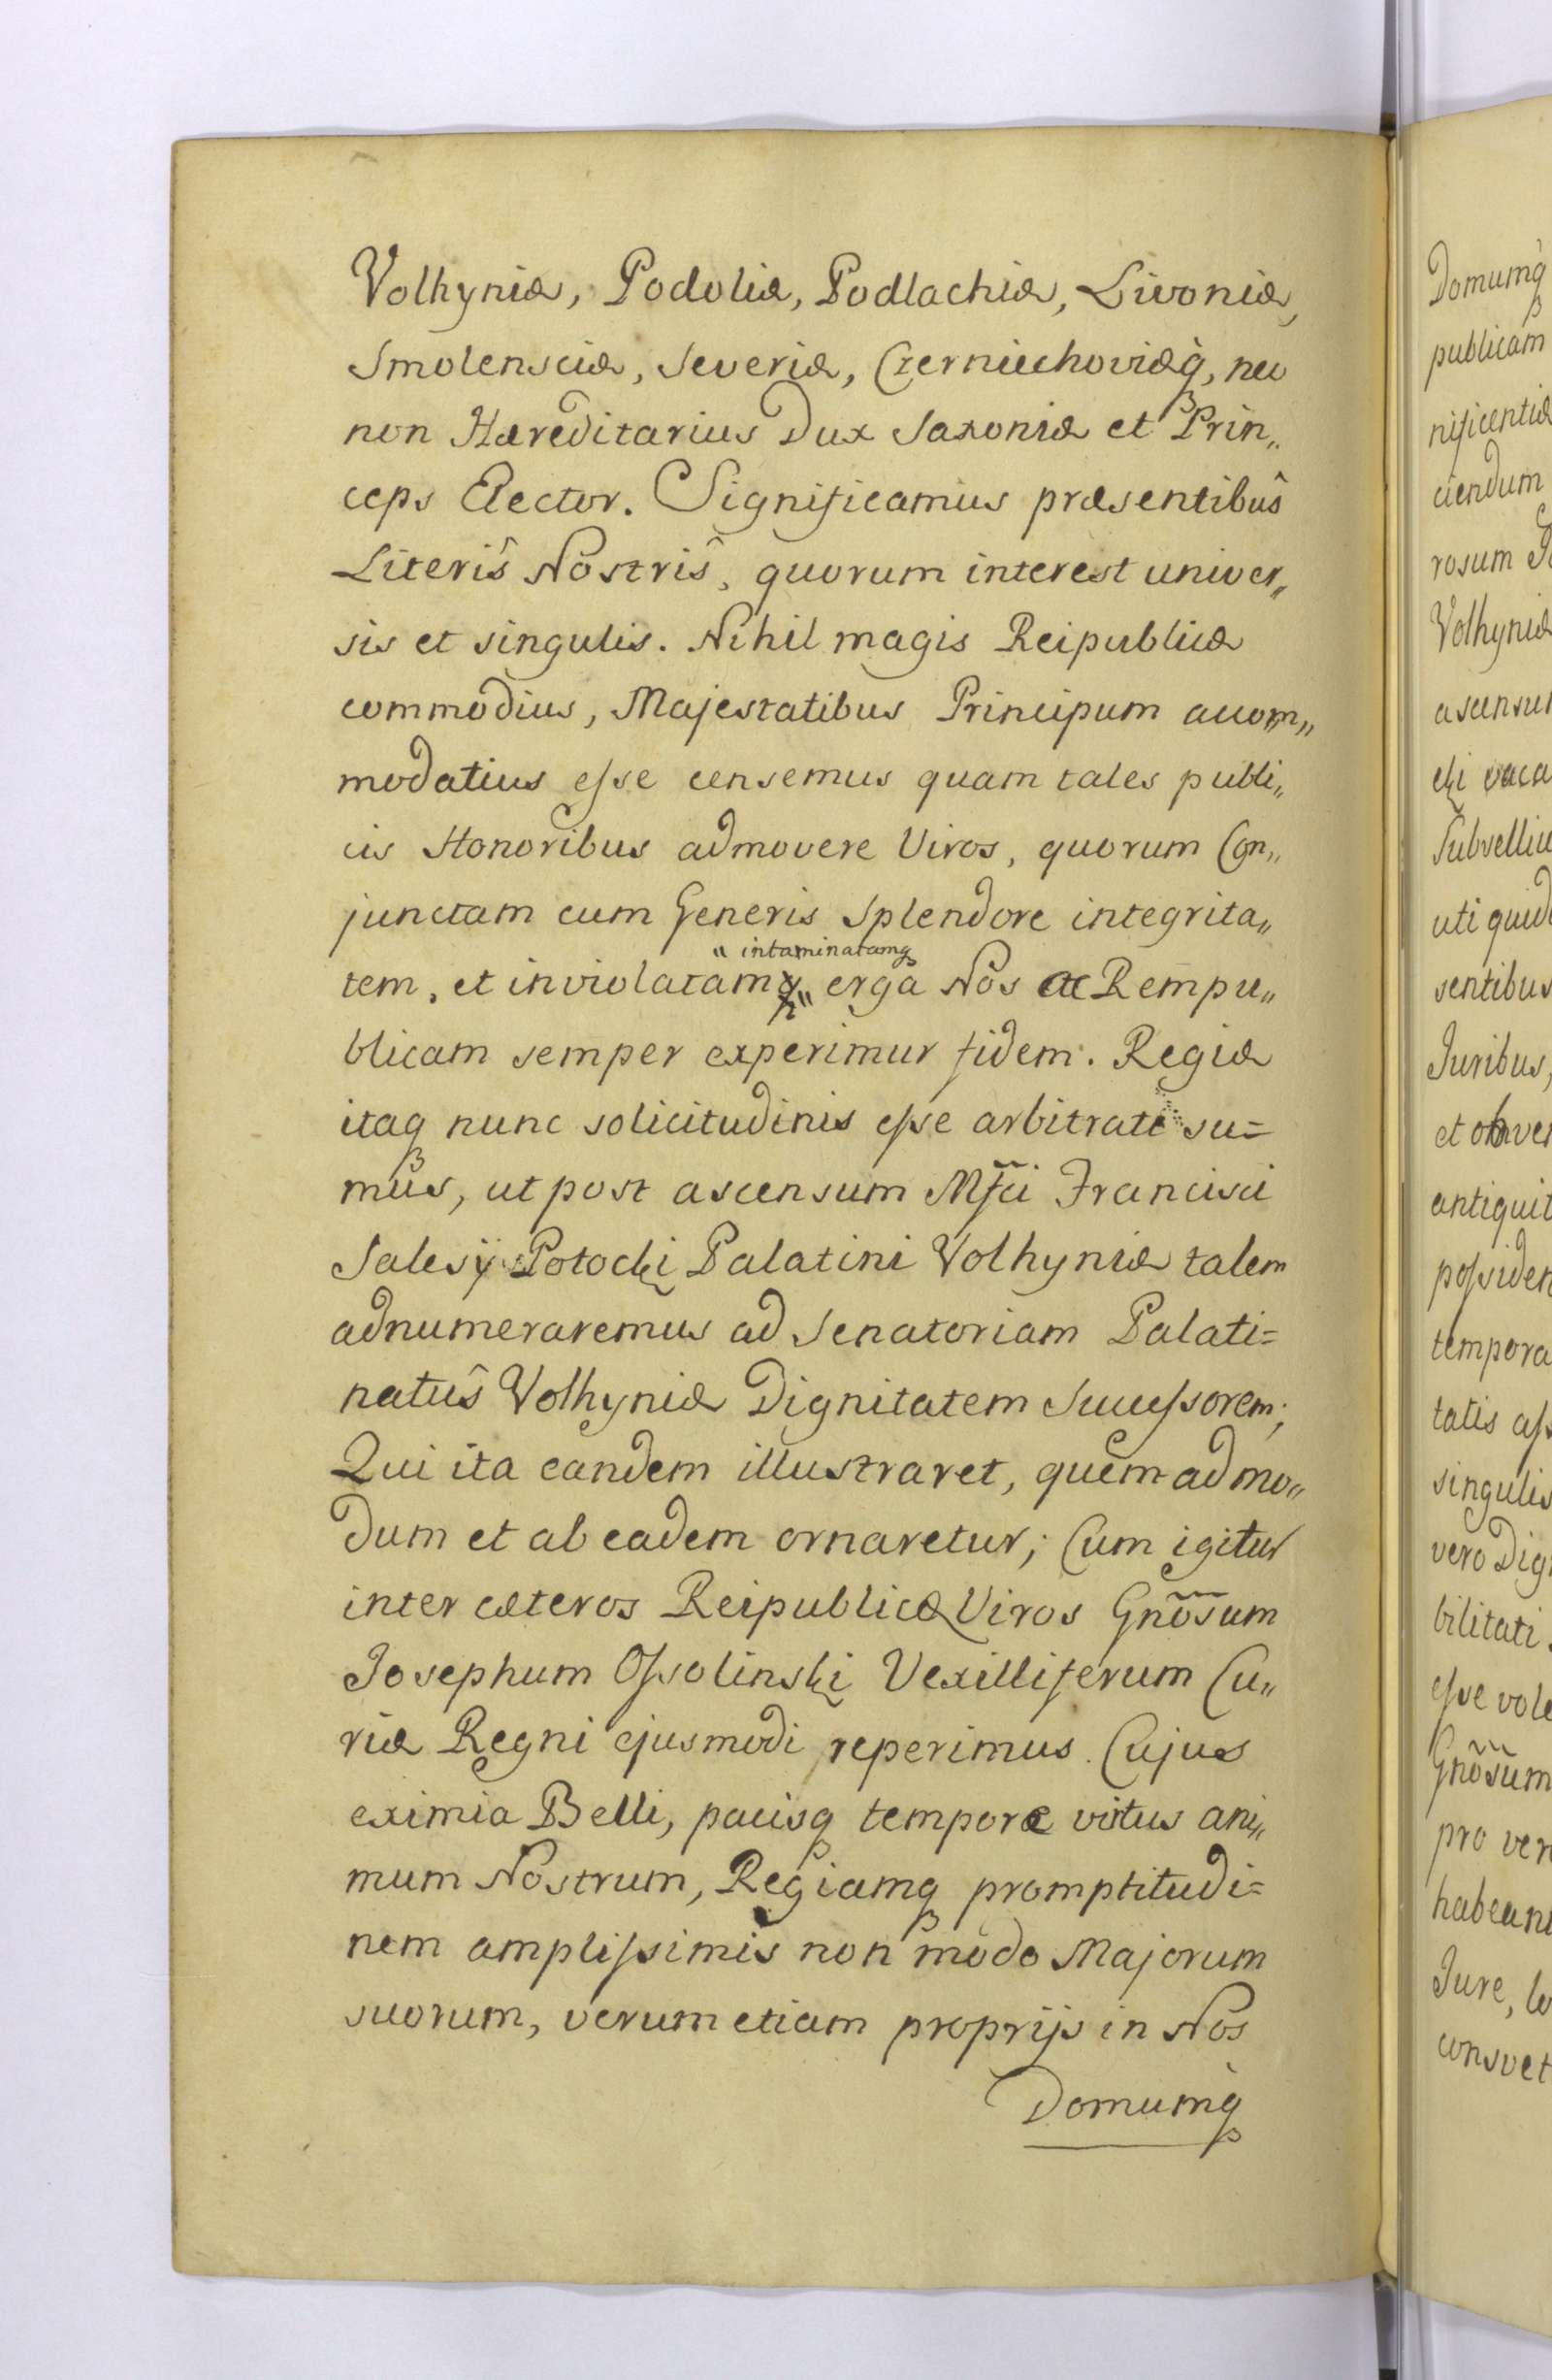 Volhyniæ, Podoliæ, Podlachiæ, Livoniæ,
Smolensciæ, Severiæ, Czerniechoviæq́ꝫ, nec
non Hæreditarius Dux Saxoniæ et Prin„
ceps Elector. Significamus præsentibûs
Literîs Nostrîs, quorum interest univer„
sis et singulis. Nihil magis Reipublicæ
commodius, Majestatibus Principum accom„
modatius eſse censemus quam tales publi„
cis Honoribus admovere Viros, quorum Con„
junctam cum Generis Splendore integrita„
„ intaminatamqꝫ
tem, et inviolatam„ erga Nos ac Rempu„
blicam semper experimur fidem. Regiæ
itaqꝫ nunc solicitudinis eſse arbitrati su=
mus, ut post ascensum Mf̃ci Francisci
Salesij Potocki Palatini Volhyniæ talem
adnumeraremus ad Senatoriam Palati=
natûs Volhyniæ Dignitatem Succeſsorem;
Qui ita eandem illustraret, quem ad mo„
dum et ab eadem ornaretur; Cum igitur
inter cæteros Reipublicæ Viros Gnõsum
Josephum Oſsolinski Vexilliferum Cu„
riæ Regni ejusmodi reperimus. Cujus
eximia Belli, pacisqꝫ tempore virtus ani„
mum Nostrum, Regiamqꝫ promptitudi=
nem ampliſsimis non modo Majorum
suorum, verum etiam proprijs in Nos
Domumq́ꝫ
Domumq́ꝫ
publicam
nificentiæ
ciendum
rosum
Volhyniæ
ascensu
cki vaca
Subselliu
uti quid
sentibus
Juribus,
et obver
antiquit
poſsiden
tempora
tatis aſs
singulis
vero Dig
bilitati
eſse vole
Gnõsum
pro ver
habeant
Jure, le
consvet